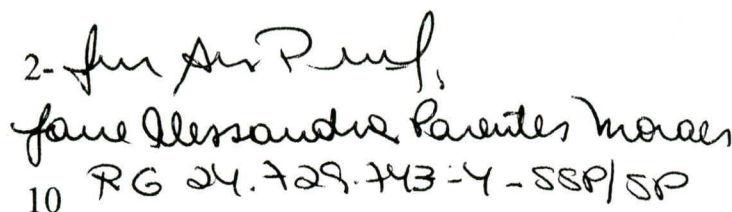 2-
Jane Alessandra Parentes Moraes
10 RG 24.729.743-4 - SSP/SP